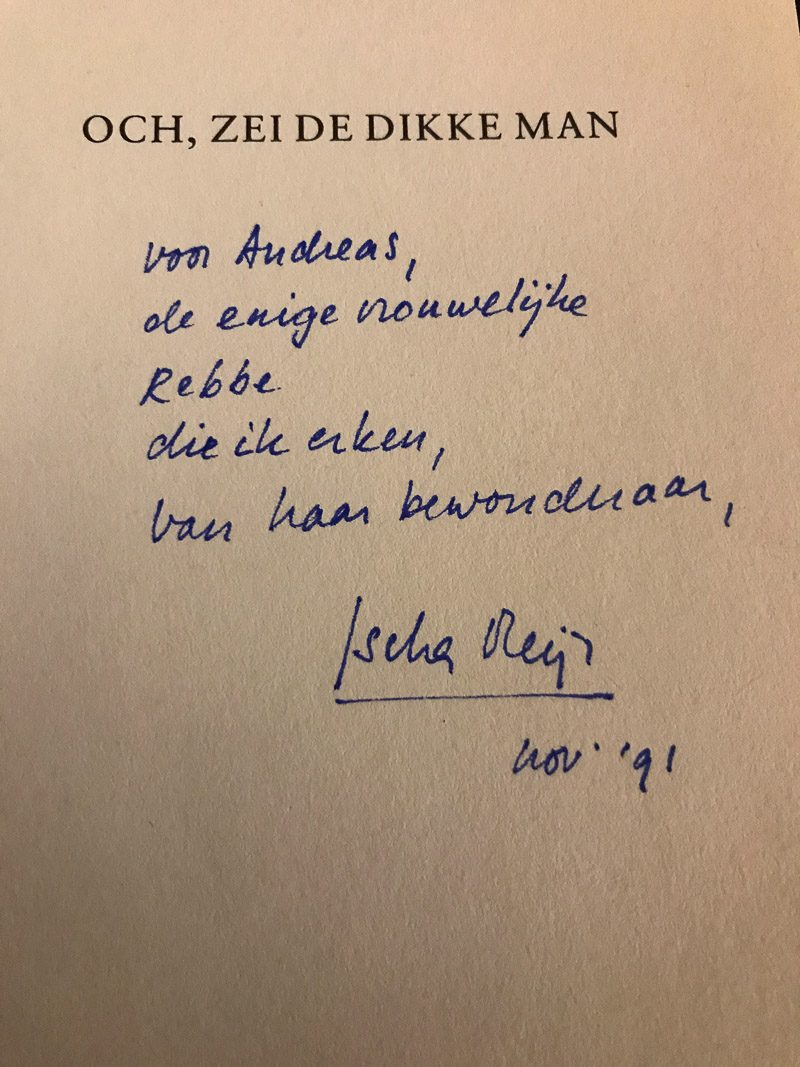 OCH, ZEI DE DIKKE MAN
voor Andreas,
de enige vrouwelijke
Rebbe
die ik erken,
van haar bewonderaar,
Ischa Meijer
nov. '91